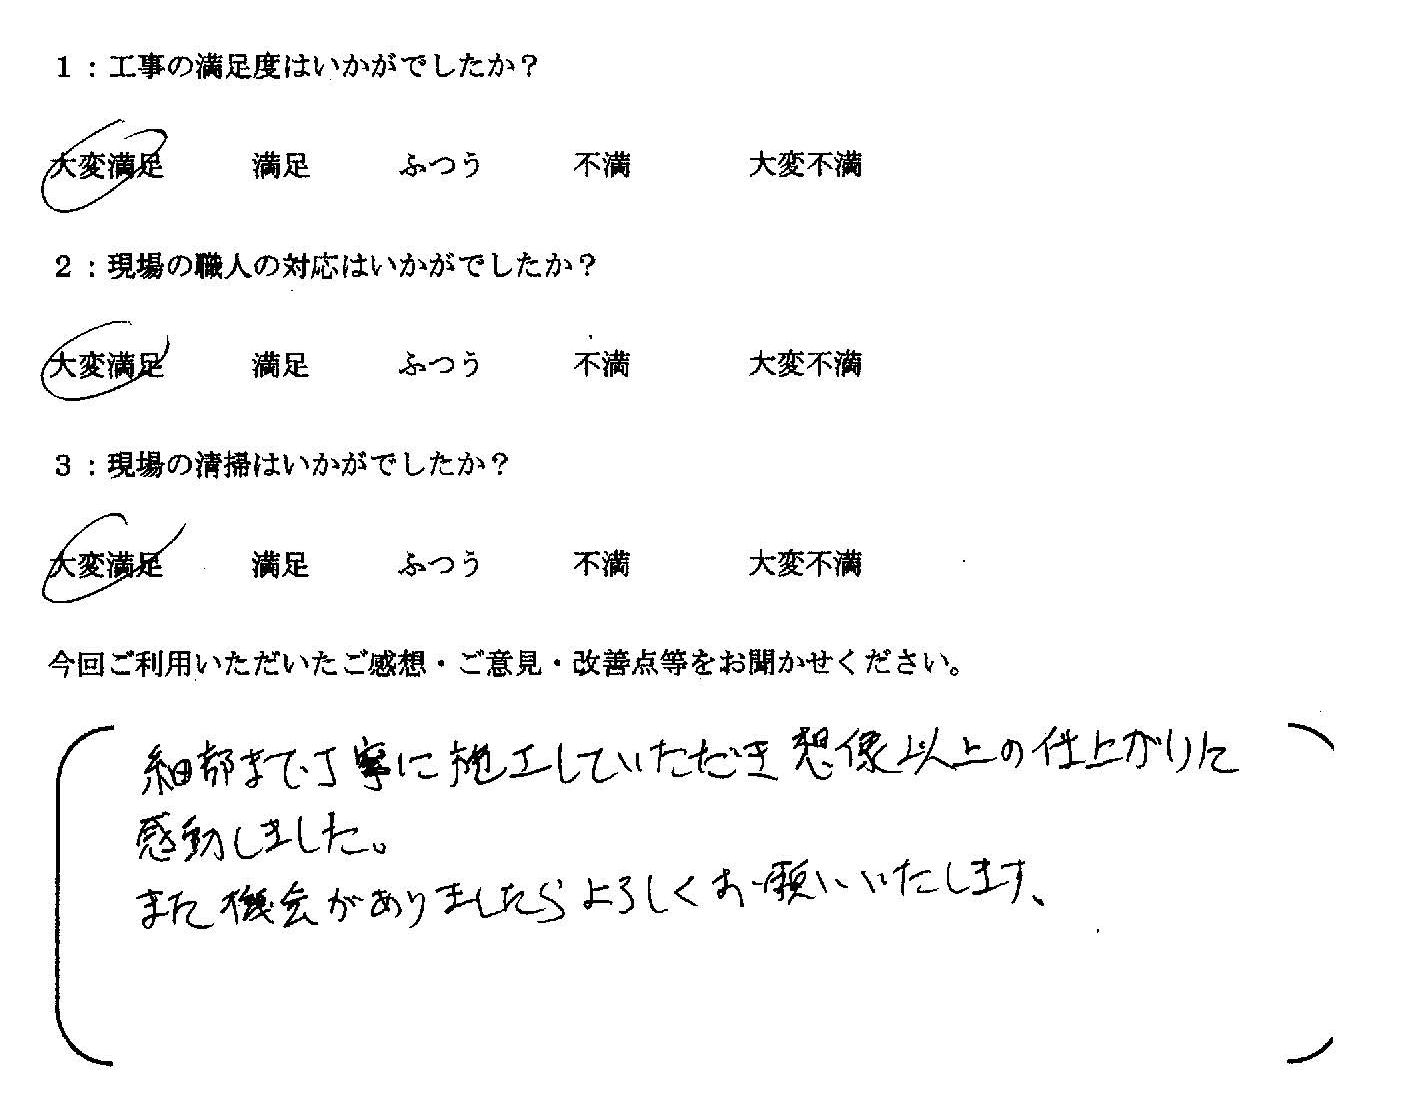 1：工事の満足度はいかがでしたか？
大変満足 満足 ふつう 不満 大変不満
2：現場の職人の対応はいかがでしたか？
大変満足 満足 ふつう 不満 大変不満
3：現場の清掃はいかがでしたか？
大変満足 満足 ふつう 不満 大変不満
今回ご利用いただいたご感想・ご意見・改善点等をお聞かせください。
細部まで丁寧に施工していただき想像以上の仕上がりに
感動しました。
また機会がありましたらよろしくお願いいたします、